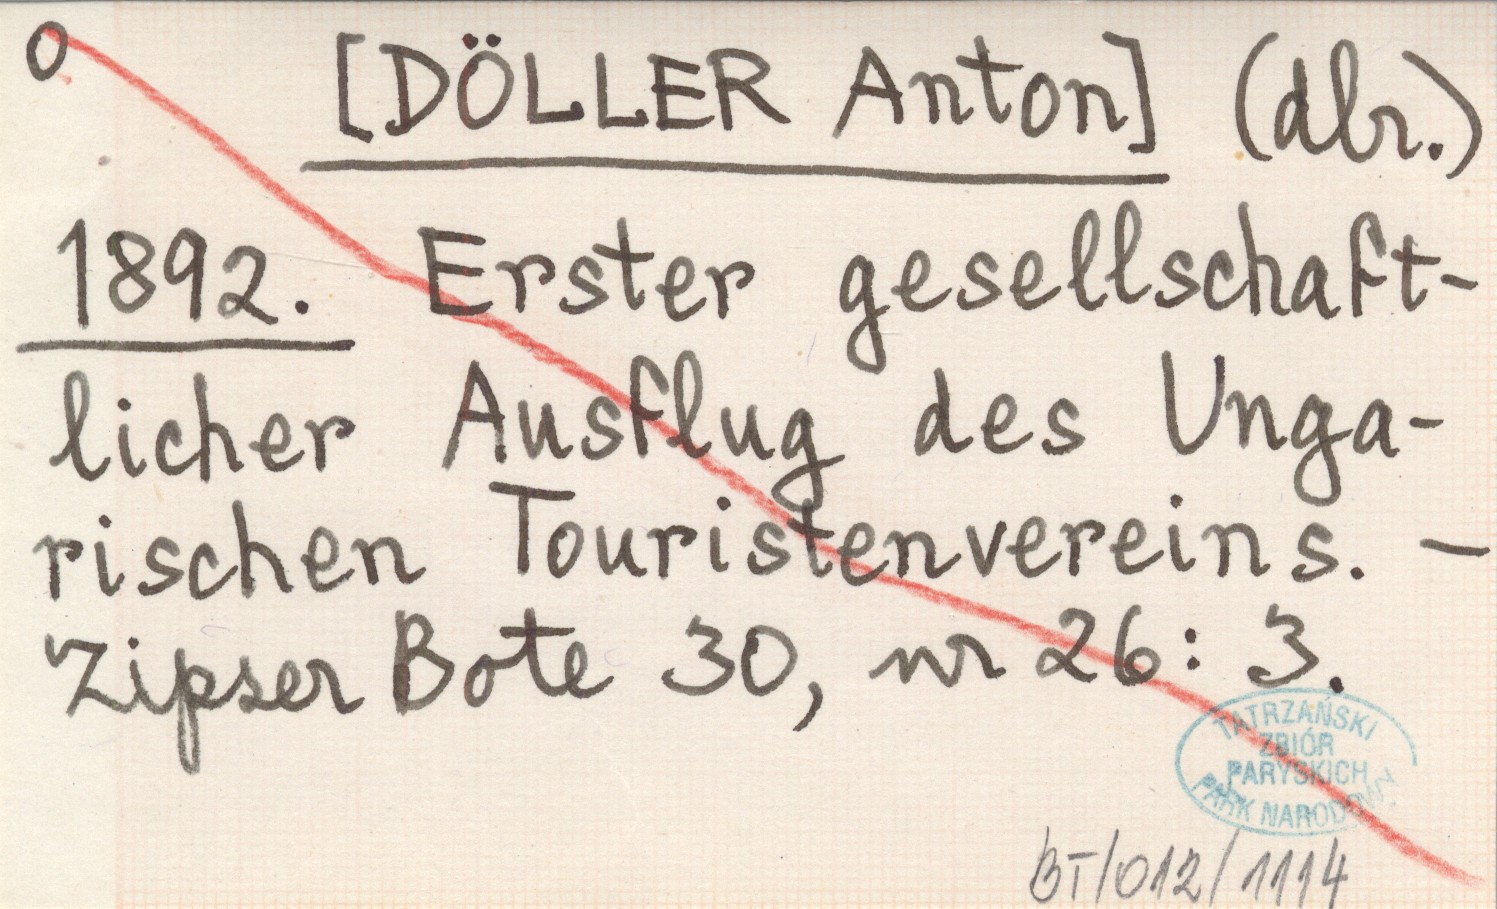 o [DÖLLER Anton] (dbr.)
1892. Erster gesellschaft-
licher Ausflug des Unga-
rischen Touristenvereins. —
Zipser Bote 30, nr 26: 3.
TATRZAŃSKI
ZBIÓR
PARYSKICH
PARK NARODOWY
BT/012/1114